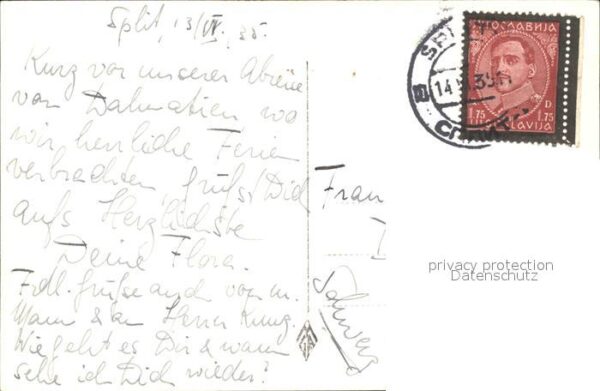 Split, 13/IV. 35.
Kurz vor unserer Abreise
von Dalmatien wo
wir herrliche Ferien
verbrachten, grüss, Dich
aufs Herzlichste
Deine Flora.
Frdl. Grüße auch von m.
Mann & an Herrn Kunz.
Wie geht es Dir & wann
sehe ich Dich wieder?
Frau
Schweiz
SPLIT
14
35
B
СПЛИТ
ЈУГОСЛАВИЈА
D
1.75 1.75
JUGOSLAVIJA
privacy protection
Datenschutz